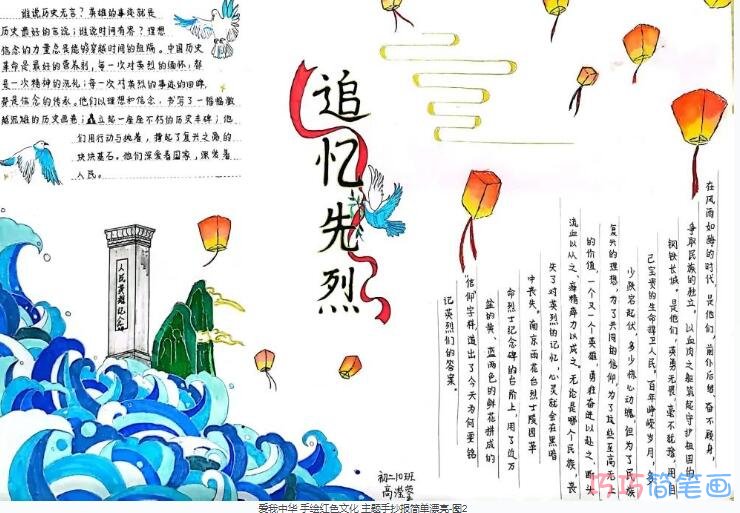 谁说历史无言？英雄的事迹就是
历史最好的言说；谁说时间有界？理想
信念的力量总是能够穿越时间的阻隔。中国历史
革命是最好的营养剂，每一次对英烈的缅怀，都
是一次精神的洗礼；每一次对英烈的事迹的回眸，
都是信念的传承。他们以理想和信念，书写了一幅幅激
越恢雄的历史画卷；矗立起一座座不朽的历史丰碑；他
们用行动与执着，撑起了复兴之路的
块块基石。他们深爱着国家，深爱着
人民。
追忆先烈
人民英雄纪念
在风雨如晦的时代，是他们，前仆后继，奋不顾身，
争取民族的独立，以血肉之躯筑起守护祖国的
钢铁长城。是他们，英勇无畏，毫不犹豫，用自
己宝贵的生命捍卫人民，百年峥嵘岁月，多
少跌宕起伏，多少惊心动魄，但为了民族
复兴的理想，为了共同的信仰，为了这些至高无上
的价值，一个又一个英雄，勇往奋进以赴之，断头
流血以从之，殚精瘁力以成之。无论是哪个民族，丧
失了对英烈的记忆，心灵就会在黑暗
中丧失。南京雨花台烈士陵园革
命烈士纪念碑的台阶上，用了近万
盆的黄、蓝两色的鲜花拼成的
“信仰”字样，道出了今天为何要铭
记英烈们的答案。
初二10班
高滢莹
巧巧简笔画
爱我中华 手绘红色文化 主题手抄报简单漂亮-图2